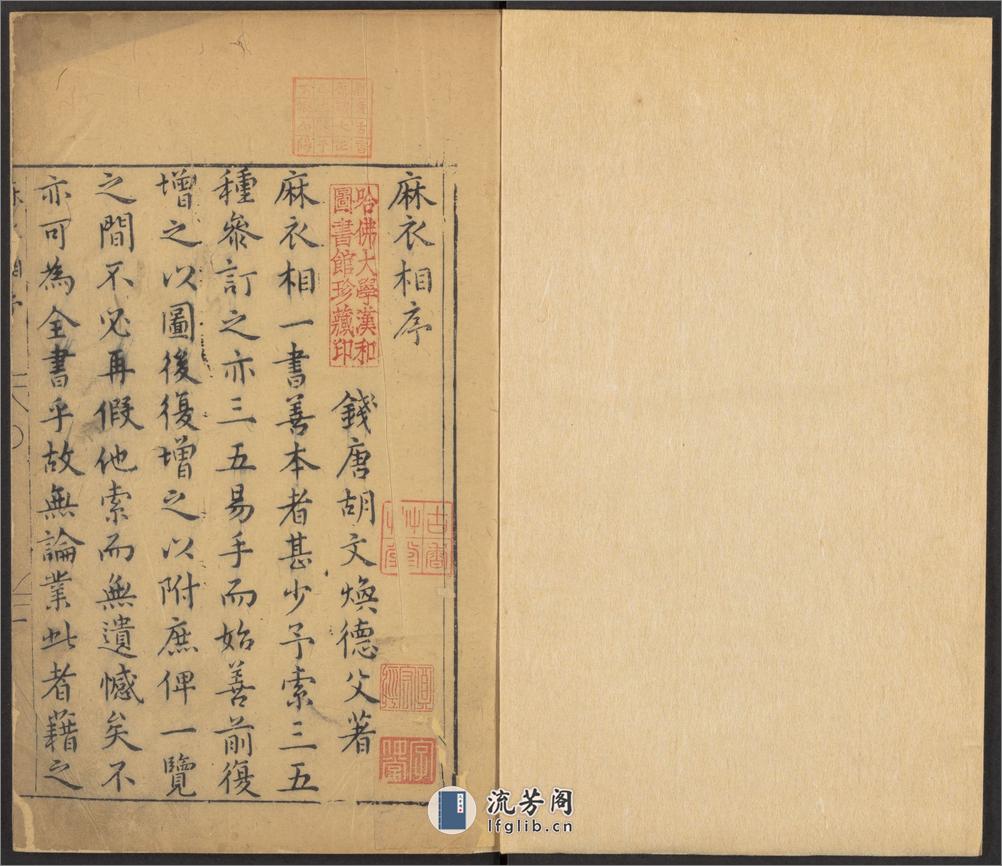 麻衣相序
錢唐胡文煥德父著
麻衣相一書善本者甚少予索三五
種叅訂之亦三五易手而始善前復
增之以圖後復增之以附庶俾一覽
之間不必再假他索而無遺憾矣不
亦可為全書乎故無論業此者藉之
哈佛大學漢和
圖書館珍藏印
流芳阁
lfglib.cn